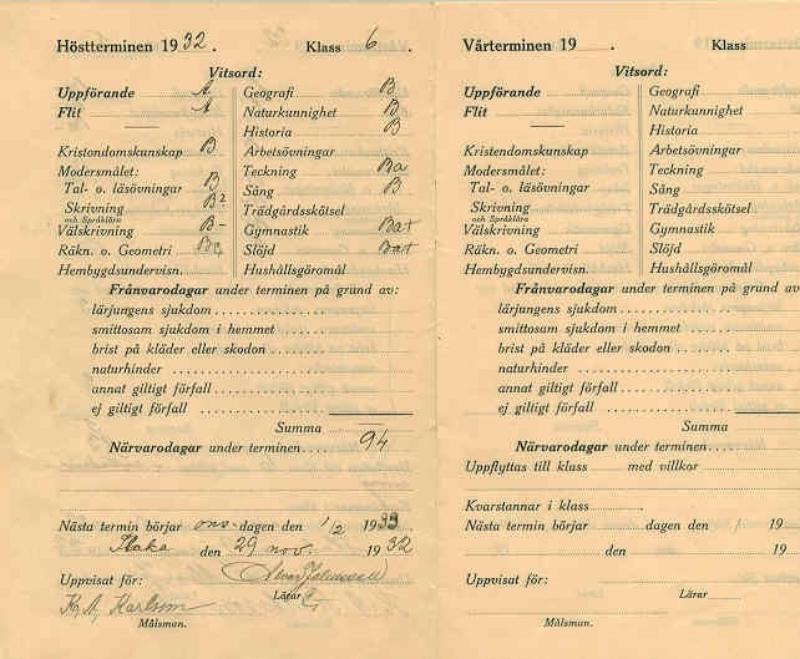 Höstterminen 1932. Klass 6.
Vitsord:
Uppförande A
Flit A
Kristendomskunskap B
Modersmålet:
Tal- o. läsövningar B
Skrivning B?
och Språklära
Välskrivning B-
Räkn. o. Geometri Ba
Hembygdsundervisn.
Geografi B
Naturkunnighet B
Historia B
Arbetsövningar
Teckning Ba
Sång B
Trädgårdsskötsel
Gymnastik Ba+
Slöjd Ba+
Hushållsgöromål
Frånvarodagar under terminen på grund av:
lärjungens sjukdom
smittosam sjukdom i hemmet
brist på kläder eller skodon
naturhinder
annat giltigt förfall
ej giltigt förfall
Summa
Närvarodagar under terminen.... 94
Nästa termin börjar ons-dagen den 1/2 1933
den 29 nov. 1932
Uppvisat för:
Lärar
K. A. Karlsson
Målsman.
Vårterminen 19 . Klass
Vitsord:
Uppförande
Flit
Kristendomskunskap
Modersmålet:
Tal- o. läsövningar
Skrivning
och Språklära
Välskrivning
Räkn. o. Geometri
Hembygdsundervisn.
Geografi
Naturkunnighet
Historia
Arbetsövningar
Teckning
Sång
Trädgårdsskötsel
Gymnastik
Slöjd
Hushållsgöromål
Frånvarodagar under terminen på grund av
lärjungens sjukdom
smittosam sjukdom i hemmet
brist på kläder eller skodon
naturhinder
annat giltigt förfall
ej giltigt förfall
Summa
Närvarodagar under terminen....
Uppflyttas till klass med villkor
Kvarstannar i klass
Nästa termin börjar dagen den 19
den 19
Uppvisat för:
Lärar
Målsman.